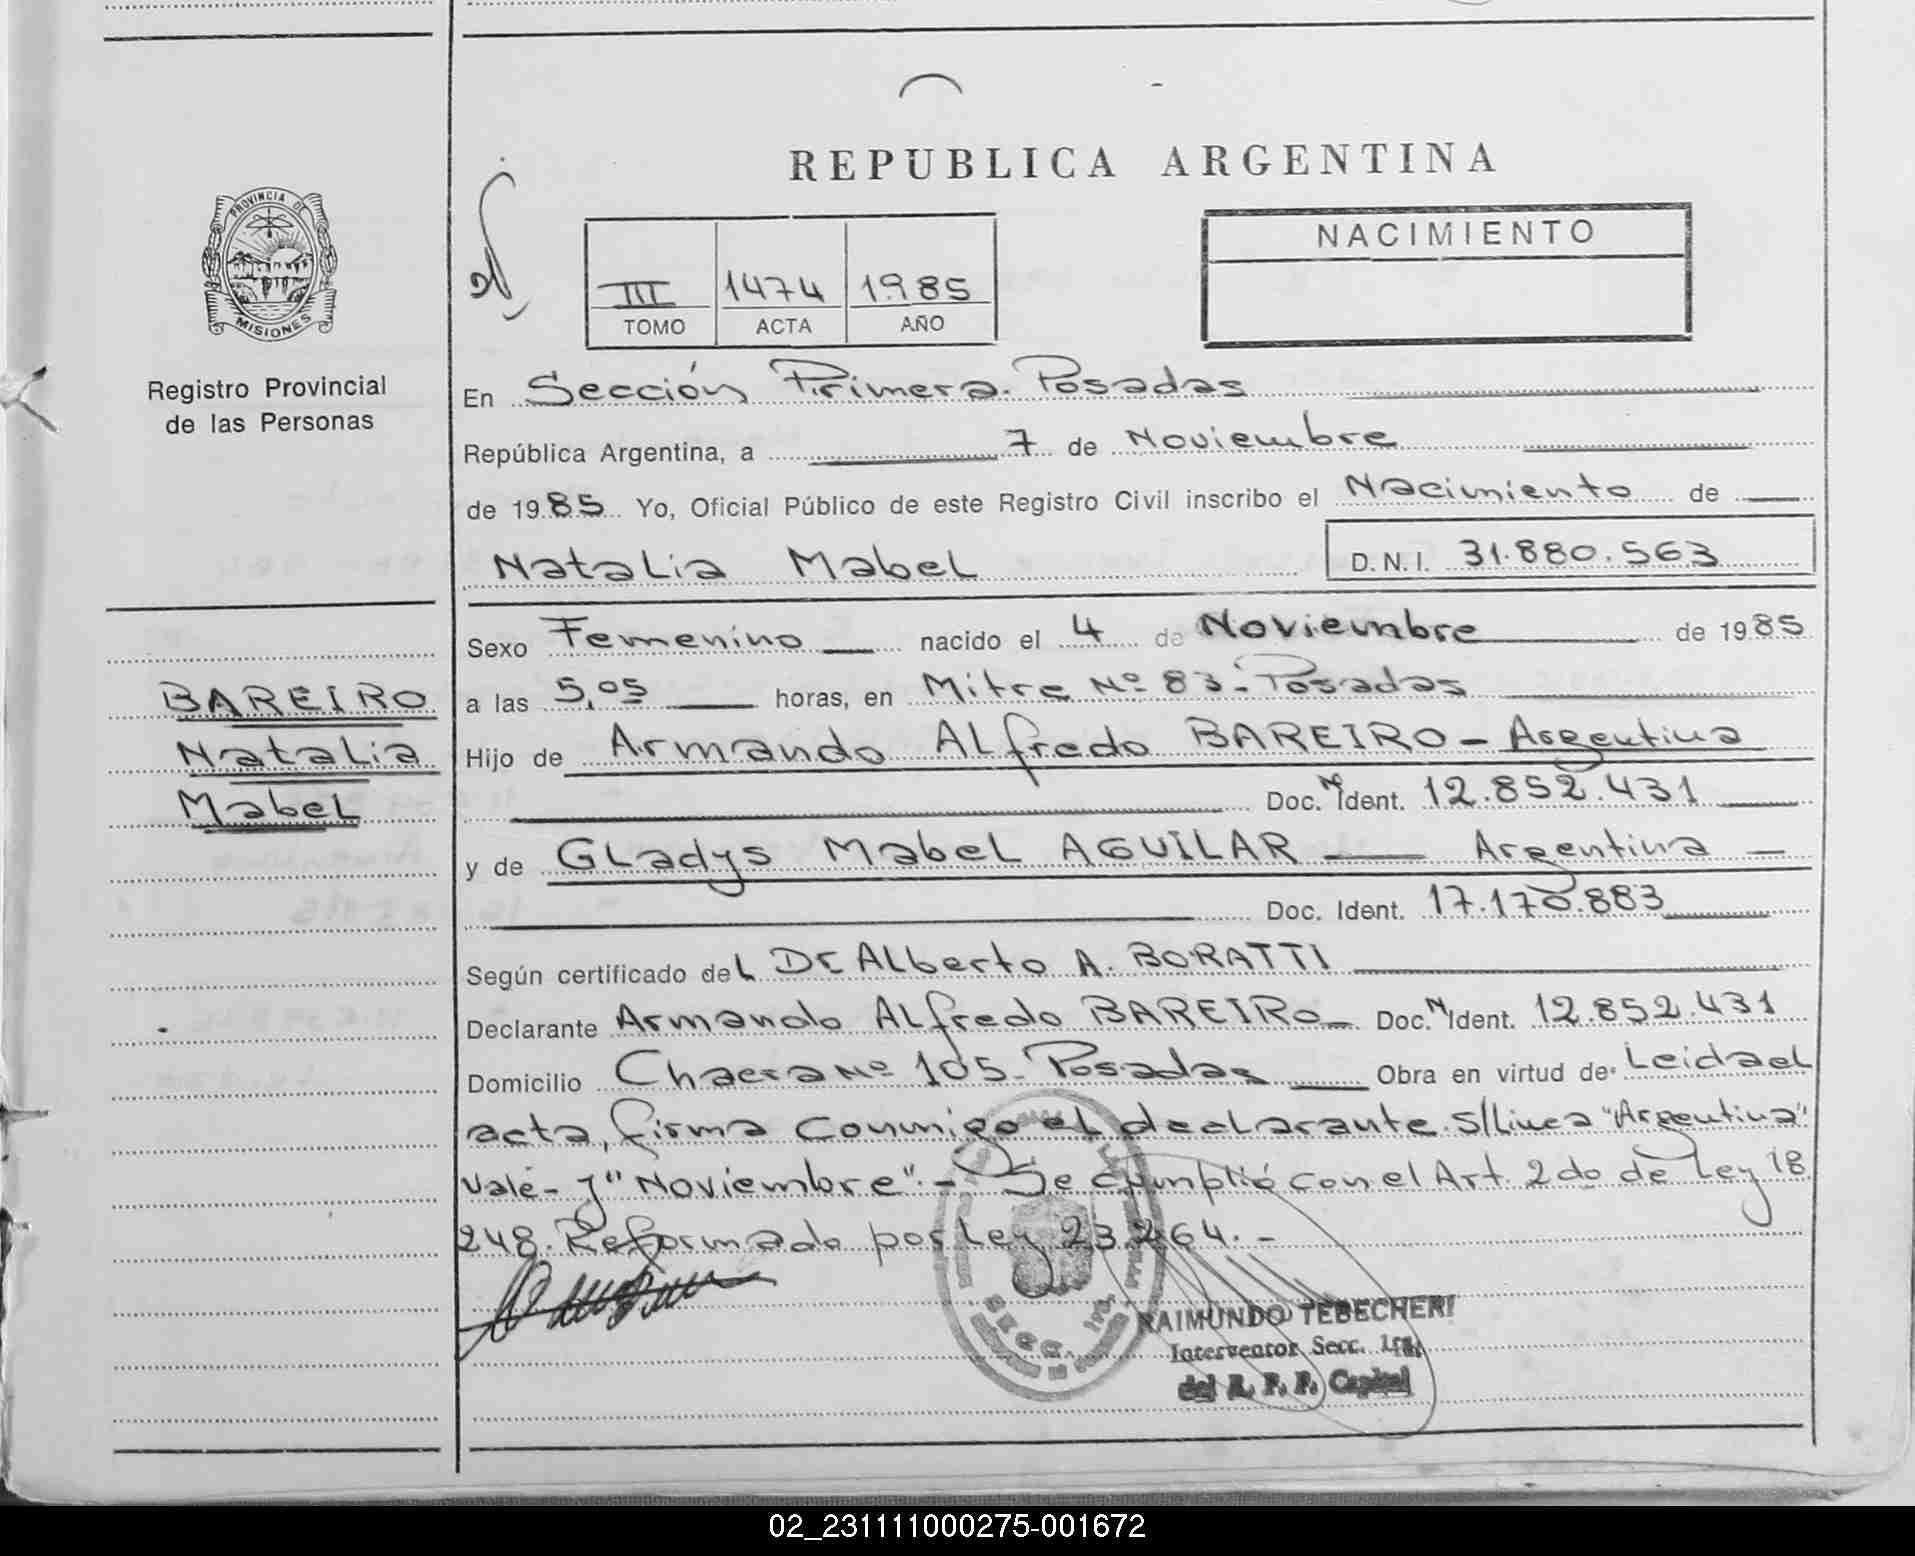 REPUBLICA ARGENTINA
PROVINCIA DE
MISIONES
Registro Provincial
de las Personas
III 1474 1985
TOMO ACTA AÑO
NACIMIENTO
En Sección Primera. Posadas
República Argentina, a 7 de Noviembre
de 1985 Yo, Oficial Público de este Registro Civil inscribo el Nacimiento de
Natalia Mabel D. N. I. 31.880.563
Sexo Femenino nacido el 4 de Noviembre de 1985
BAREIRO
Natalia
Mabel
a las 5,05 horas, en Mitre Nº 83. Posadas
Hijo de Armando Alfredo BAREIRO - Argentina
Doc. N Ident. 12.852.431
y de Gladys Mabel AGUILAR Argentina
Doc. Ident. 17.170.883
Según certificado del Dr Alberto A. BORATTI
Declarante Armando Alfredo BAREIRO Doc. N Ident. 12.852.431
Domicilio Chacra Nº 105. Posadas Obra en virtud de Leida el
acta, firma conmigo el declarante. S/Linea "Argentina"
Vale - y "Noviembre". - Se cumplió con el Art. 2do de Ley 18
248. Reformado por Ley 23264. -
RAIMUNDO TEBECHERI
Interventor Secc. 1ra.
del R. P. P. Capital
02_231111000275-001672